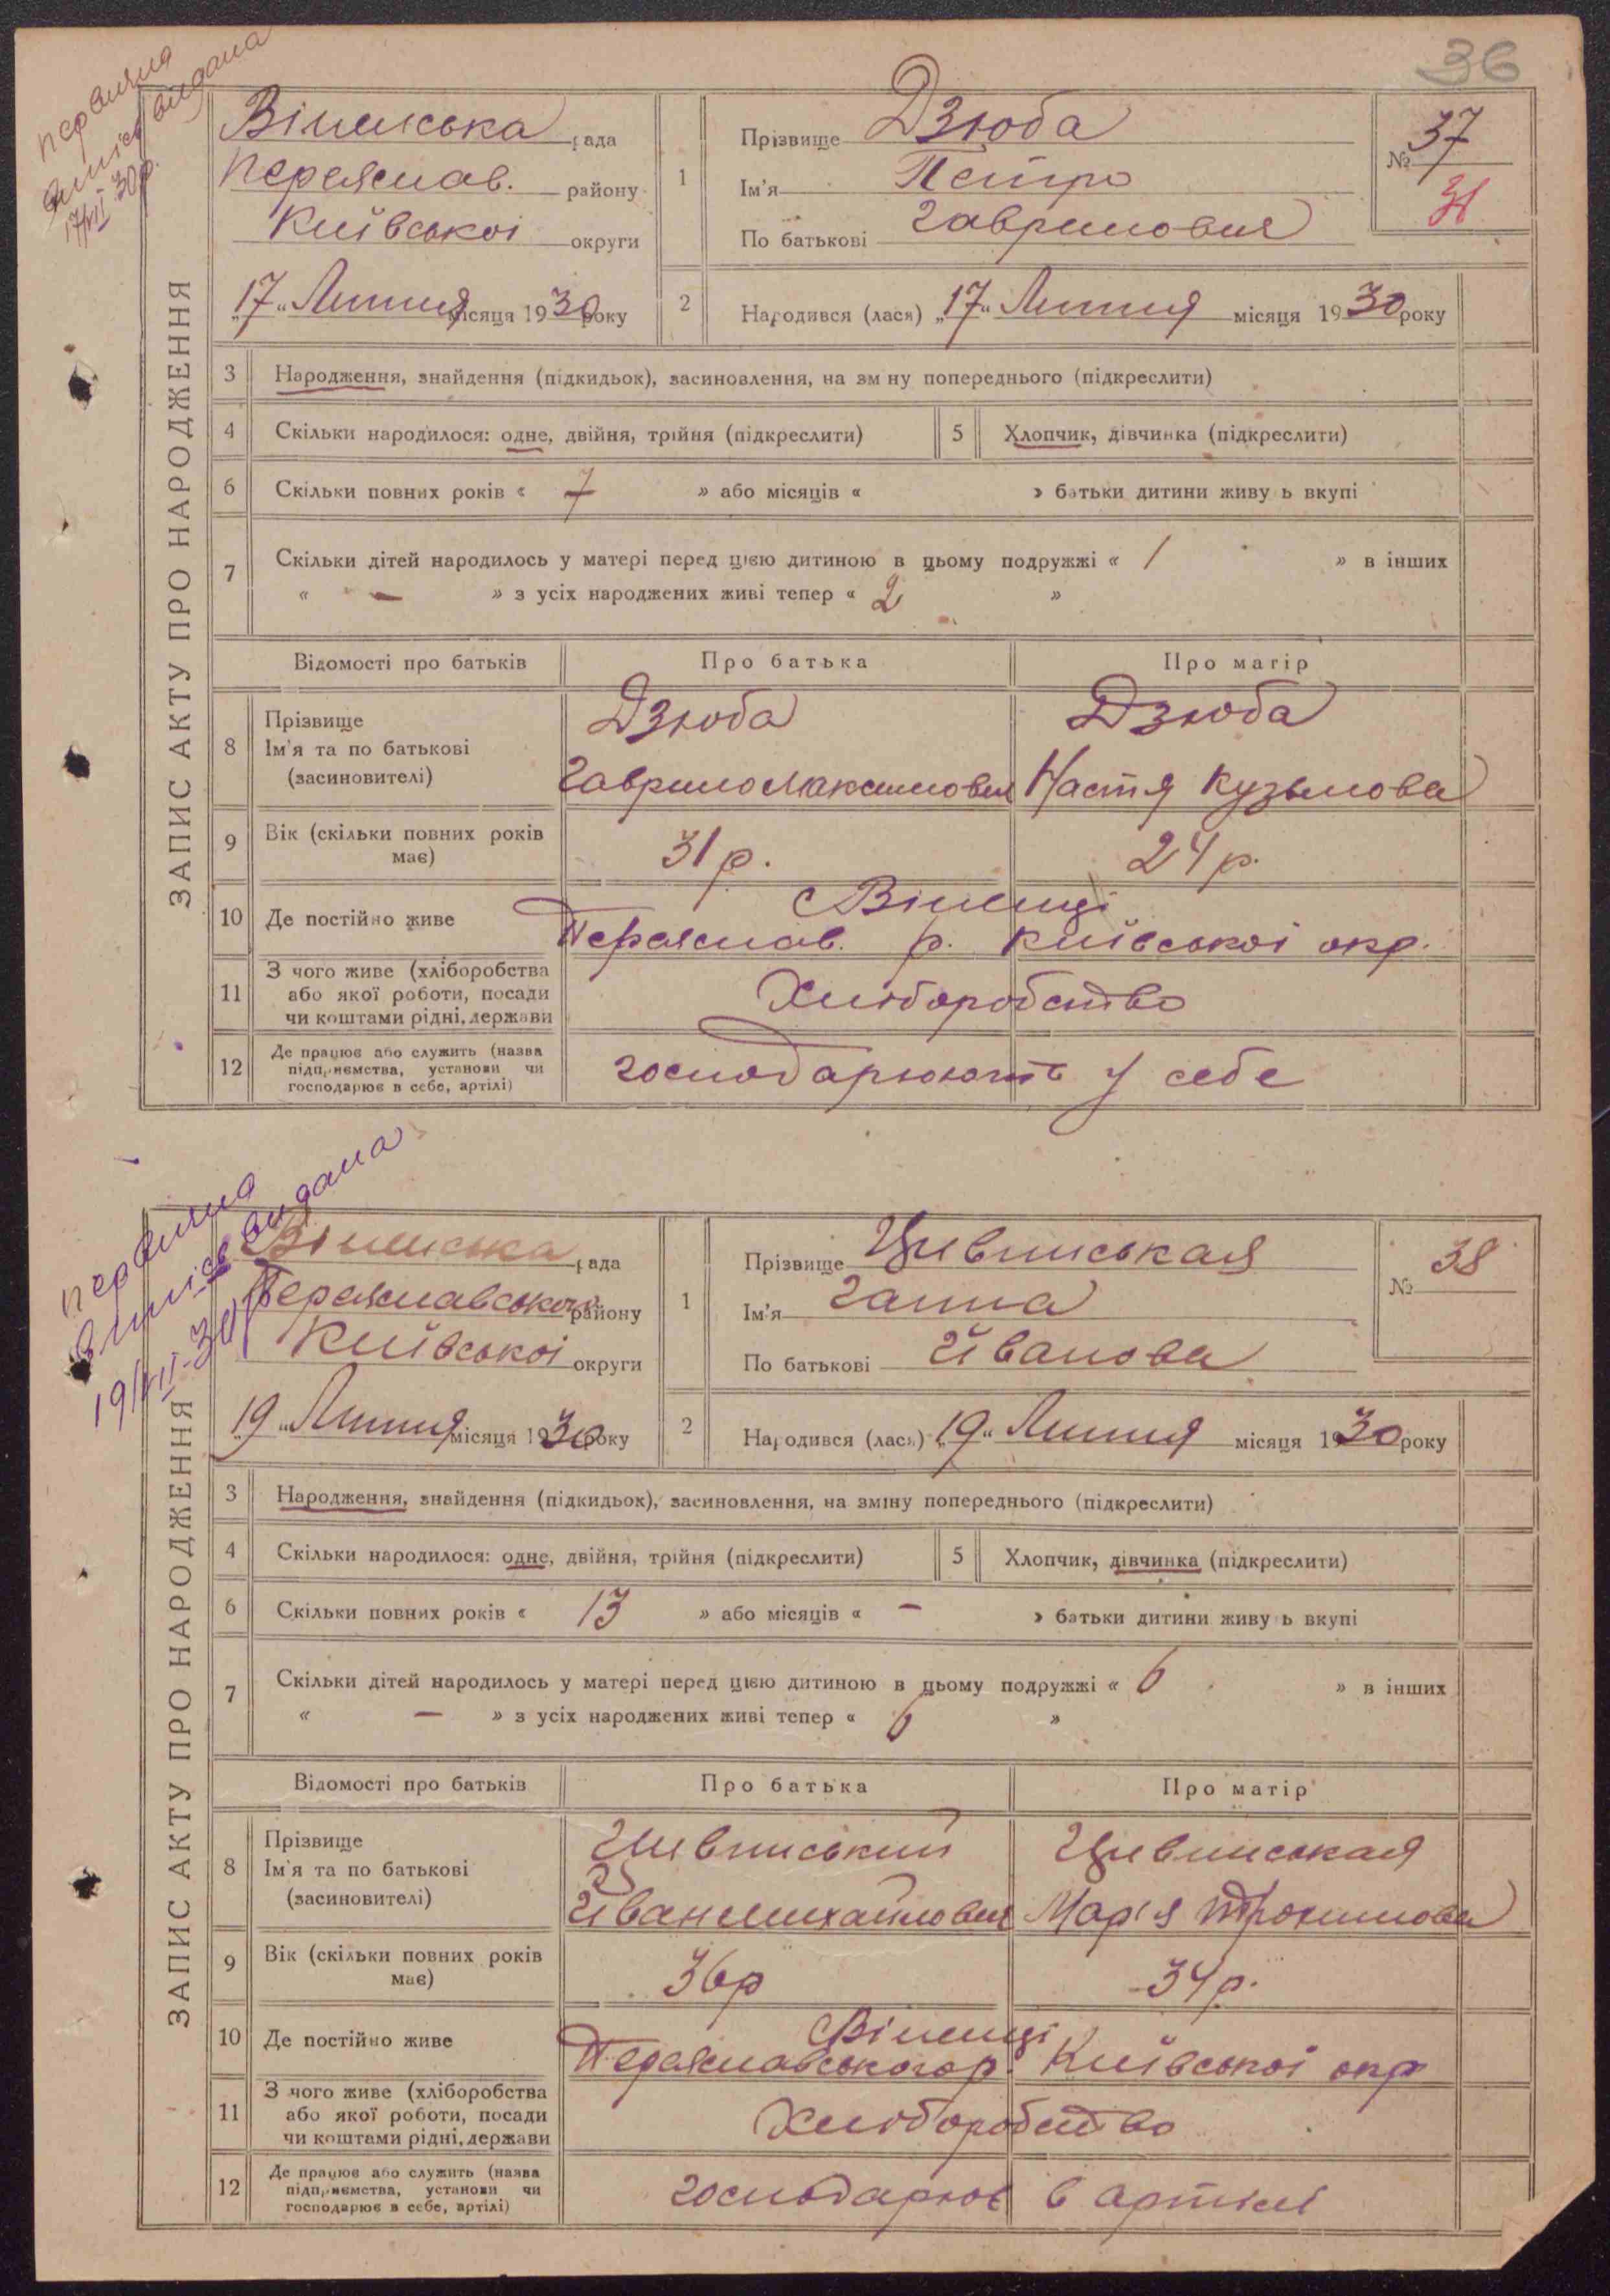 36
первична
випись видана
17/VII 30р.
ЗАПИС АКТУ ПРО НАРОДЖЕННЯ
Віненська рада
Переяслав. району
Київської округи
„17“ Липня місяця 1930 року
1
Прізвище Дзюба
Ім'я Петро
По батькові Гаврилович
№ 37
31
2
Народився (лася) „17“ Липня місяця 1930 року
3 Народження, знайдення (підкидьок), засиновлення, на зм ну попереднього (підкреслити)
4 Скільки народилося: одне, двійня, трійня (підкреслити) 5 Хлопчик, дівчинка (підкреслити)
6 Скільки повних років « 7 » або місяців « » батьки дитини живу ь вкупі
7 Скільки дітей народилось у матері перед цією дитиною в цьому подружжі « 1 » в інших
« – » з усіх народжених живі тепер « 2 »
Відомості про батьків Про батька Про матір
8 Прізвище
Ім'я та по батькові
(засиновителі)
Дзюба
Гаврило Максимович
Дзюба
Настя Кузьмова
9 Вік (скільки повних років
має)
31 р. 24 р.
10 Де постійно живе
с Віненці
Переяслав. р. Київської окр.
11 З чого живе (хліборобства
або якої роботи, посади
чи коштами рідні, держави
Хліборобство
12 Де працює або служить (назва
підприємства, установи чи
господарює в себе, артілі)
господарюють у себе
первична
випись видана
19/VII-30р
ЗАПИС АКТУ ПРО НАРОДЖЕННЯ
Віненська рада
Переяславського району
Київської округи
„19“ Липня місяця 1930 року
1
Прізвище Цивинськая
Ім'я Ганна
По батькові Йванова
№ 38
2
Народився (лася) „19“ Липня місяця 1930 року
3 Народження, знайдення (підкидьок), засиновлення, на зміну попереднього (підкреслити)
4 Скільки народилося: одне, двійня, трійня (підкреслити) 5 Хлопчик, дівчинка (підкреслити)
6 Скільки повних років « 13 » або місяців « – » батьки дитини живу ь вкупі
7 Скільки дітей народилось у матері перед цією дитиною в цьому подружжі « 6 » в інших
« – » з усіх народжених живі тепер « 6 »
Відомості про батьків Про батька Про матір
8 Прізвище
Ім'я та по батькові
(засиновителі)
Цивинський
Йван Михайлович
Цивинськая
Мар'я Трохимова
9 Вік (скільки повних років
має)
36р 34 р.
10 Де постійно живе
с Віненці
Переяславського р. Київської окр
11 З чого живе (хліборобства
або якої роботи, посади
чи коштами рідні, держави
Хліборобство
12 Де працює або служить (назва
підприємства, установи чи
господарює в себе, артілі)
господарює в артілі